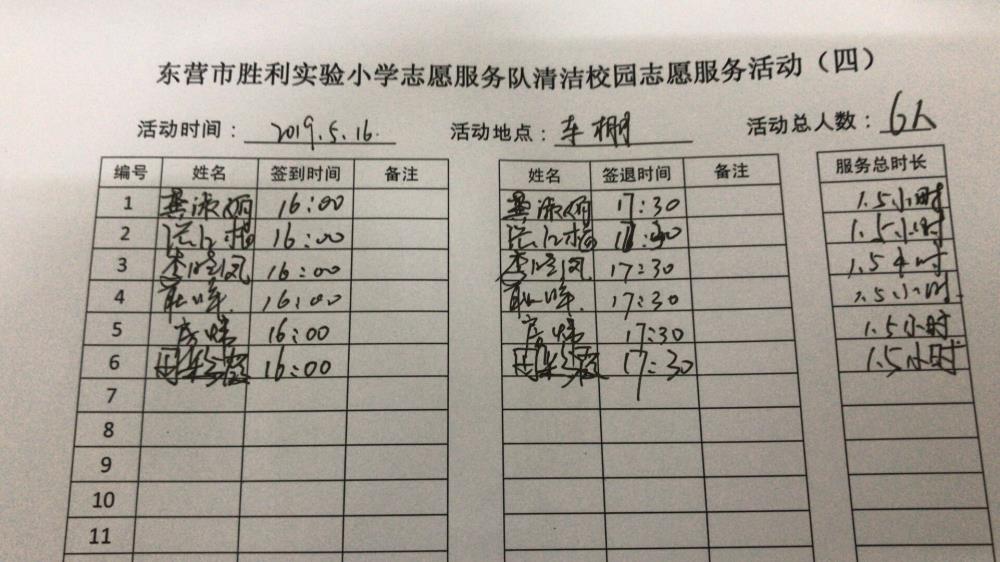 东营市胜利实验小学志愿服务队清洁校园志愿服务活动（四）
活动时间： 2019.5.16. 活动地点： 车棚 活动总人数： 6人
编号 姓名 签到时间 备注 姓名 签退时间 备注 服务总时长
1 龚淑娟 16:00 龚淑娟 17:30 1.5小时
2 16:00 17:30 1.5小时
3 李晓凤 16:00 李晓凤 17:30 1.5小时
4 16:00 17:30 1.5小时
5 16:00 17:30 1.5小时
6 16:00 17:30 1.5小时
7
8
9
10
11